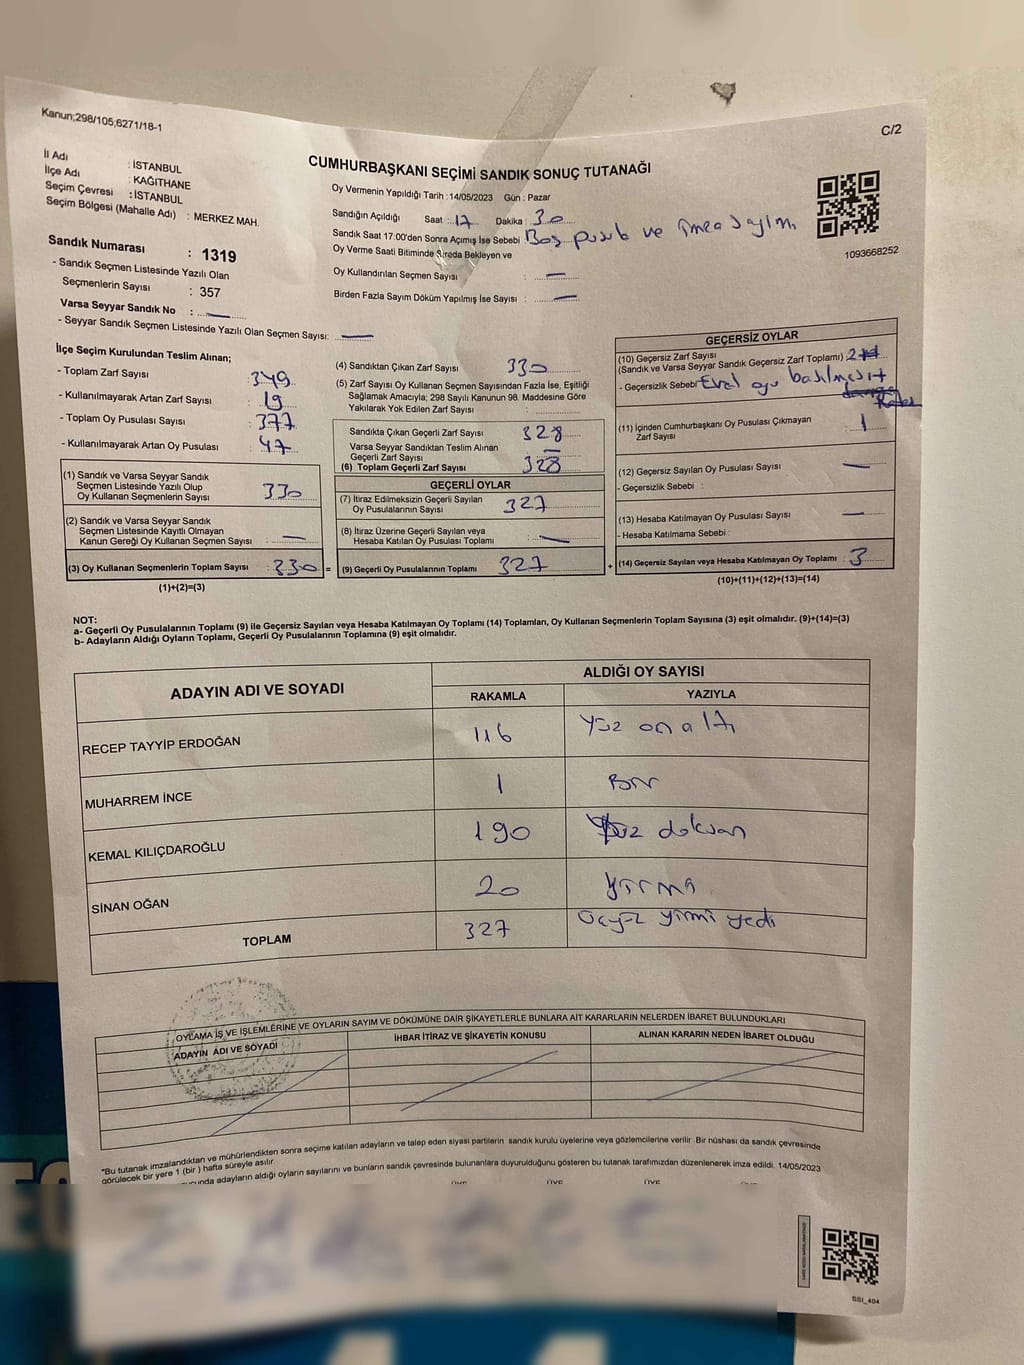 Kanun;298/105;6271/18-1
C/2
İl Adı : İSTANBUL
İlçe Adı : KAĞITHANE
Seçim Çevresi : İSTANBUL
Seçim Bölgesi (Mahalle Adı) : MERKEZ MAH.
Sandık Numarası : 1319
- Sandık Seçmen Listesinde Yazılı Olan
Seçmenlerin Sayısı : 357
Varsa Seyyar Sandık No : —
- Seyyar Sandık Seçmen Listesinde Yazılı Olan Seçmen Sayısı: —
CUMHURBAŞKANI SEÇİMİ SANDIK SONUÇ TUTANAĞI
Oy Vermenin Yapıldığı Tarih : 14/05/2023 Gün : Pazar
Sandığın Açıldığı Saat : 17 Dakika : 30
Sandık Saat 17:00'den Sonra Açımış İse Sebebi Boş pusula ve imza sayımı
Oy Verme Saati Bitiminde Sırada Bekleyen ve
Oy Kullandırılan Seçmen Sayısı : —
Birden Fazla Sayım Döküm Yapılmış İse Sayısı : —
1093668252
İlçe Seçim Kurulundan Teslim Alınan;
- Toplam Zarf Sayısı : 349
- Kullanılmayarak Artan Zarf Sayısı : 19
- Toplam Oy Pusulası Sayısı : 377
- Kullanılmayarak Artan Oy Pusulası : 47
(1) Sandık ve Varsa Seyyar Sandık
Seçmen Listesinde Yazılı Olup
Oy Kullanan Seçmenlerin Sayısı 330
(2) Sandık ve Varsa Seyyar Sandık
Seçmen Listesinde Kayıtlı Olmayan
Kanun Gereği Oy Kullanan Seçmen Sayısı : —
(3) Oy Kullanan Seçmenlerin Toplam Sayısı : 330 =
(1)+(2)=(3)
(4) Sandıktan Çıkan Zarf Sayısı 330
(5) Zarf Sayısı Oy Kullanan Seçmen Sayısından Fazla İse, Eşitliği
Sağlamak Amacıyla; 298 Sayılı Kanunun 98. Maddesine Göre
Yakılarak Yok Edilen Zarf Sayısı :
Sandıkta Çıkan Geçerli Zarf Sayısı 328
Varsa Seyyar Sandıktan Teslim Alınan
Geçerli Zarf Sayısı —
(6) Toplam Geçerli Zarf Sayısı 328
GEÇERLİ OYLAR
(7) İtiraz Edilmeksizin Geçerli Sayılan
Oy Pusulalarının Sayısı 327
(8) İtiraz Üzerine Geçerli Sayılan veya
Hesaba Katılan Oy Pusulası Toplamı : —
(9) Geçerli Oy Pusulalarının Toplamı 327 +
GEÇERSİZ OYLAR
(10) Geçersiz Zarf Sayısı
(Sandık ve Varsa Seyyar Sandık Geçersiz Zarf Toplamı) : 2
- Geçersizlik Sebebi
(11) İçinden Cumhurbaşkanı Oy Pusulası Çıkmayan
Zarf Sayısı 1
(12) Geçersiz Sayılan Oy Pusulası Sayısı —
- Geçersizlik Sebebi :
(13) Hesaba Katılmayan Oy Pusulası Sayısı —
- Hesaba Katılmama Sebebi :
(14) Geçersiz Sayılan veya Hesaba Katılmayan Oy Toplamı : 3
(10)+(11)+(12)+(13)=(14)
NOT:
a- Geçerli Oy Pusulalarının Toplamı (9) ile Geçersiz Sayılan veya Hesaba Katılmayan Oy Toplamı (14) Toplamları, Oy Kullanan Seçmenlerin Toplam Sayısına (3) eşit olmalıdır. (9)+(14)=(3)
b- Adayların Aldığı Oyların Toplamı, Geçerli Oy Pusulalarının Toplamına (9) eşit olmalıdır.
ADAYIN ADI VE SOYADI
ALDIĞI OY SAYISI
RAKAMLA YAZIYLA
RECEP TAYYİP ERDOĞAN 116 Yüz on altı
MUHARREM İNCE 1 Bir
KEMAL KILIÇDAROĞLU 190 Yüz doksan
SİNAN OĞAN 20 Yirmi
TOPLAM 327 Üçyüz yirmi yedi
OYLAMA İŞ VE İŞLEMLERİNE VE OYLARIN SAYIM VE DÖKÜMÜNE DAİR ŞİKAYETLERLE BUNLARA AİT KARARLARIN NELERDEN İBARET BULUNDUKLARI
ADAYIN ADI VE SOYADI
İHBAR İTİRAZ VE ŞİKAYETİN KONUSU
ALINAN KARARIN NEDEN İBARET OLDUĞU
*Bu tutanak imzalandıktan ve mühürlendikten sonra seçime katılan adayların ve talep eden siyasi partilerin sandık kurulu üyelerine veya gözlemcilerine verilir .Bir nüshası da sandık çevresinde
görülecek bir yere 1 (bir ) hafta süreyle asılır.
adayların aldığı oyların sayılarını ve bunların sandık çevresinde bulunanlara duyurulduğunu gösteren bu tutanak tarafımızdan düzenlenerek imza edildi. 14/05/2023
SSI_404